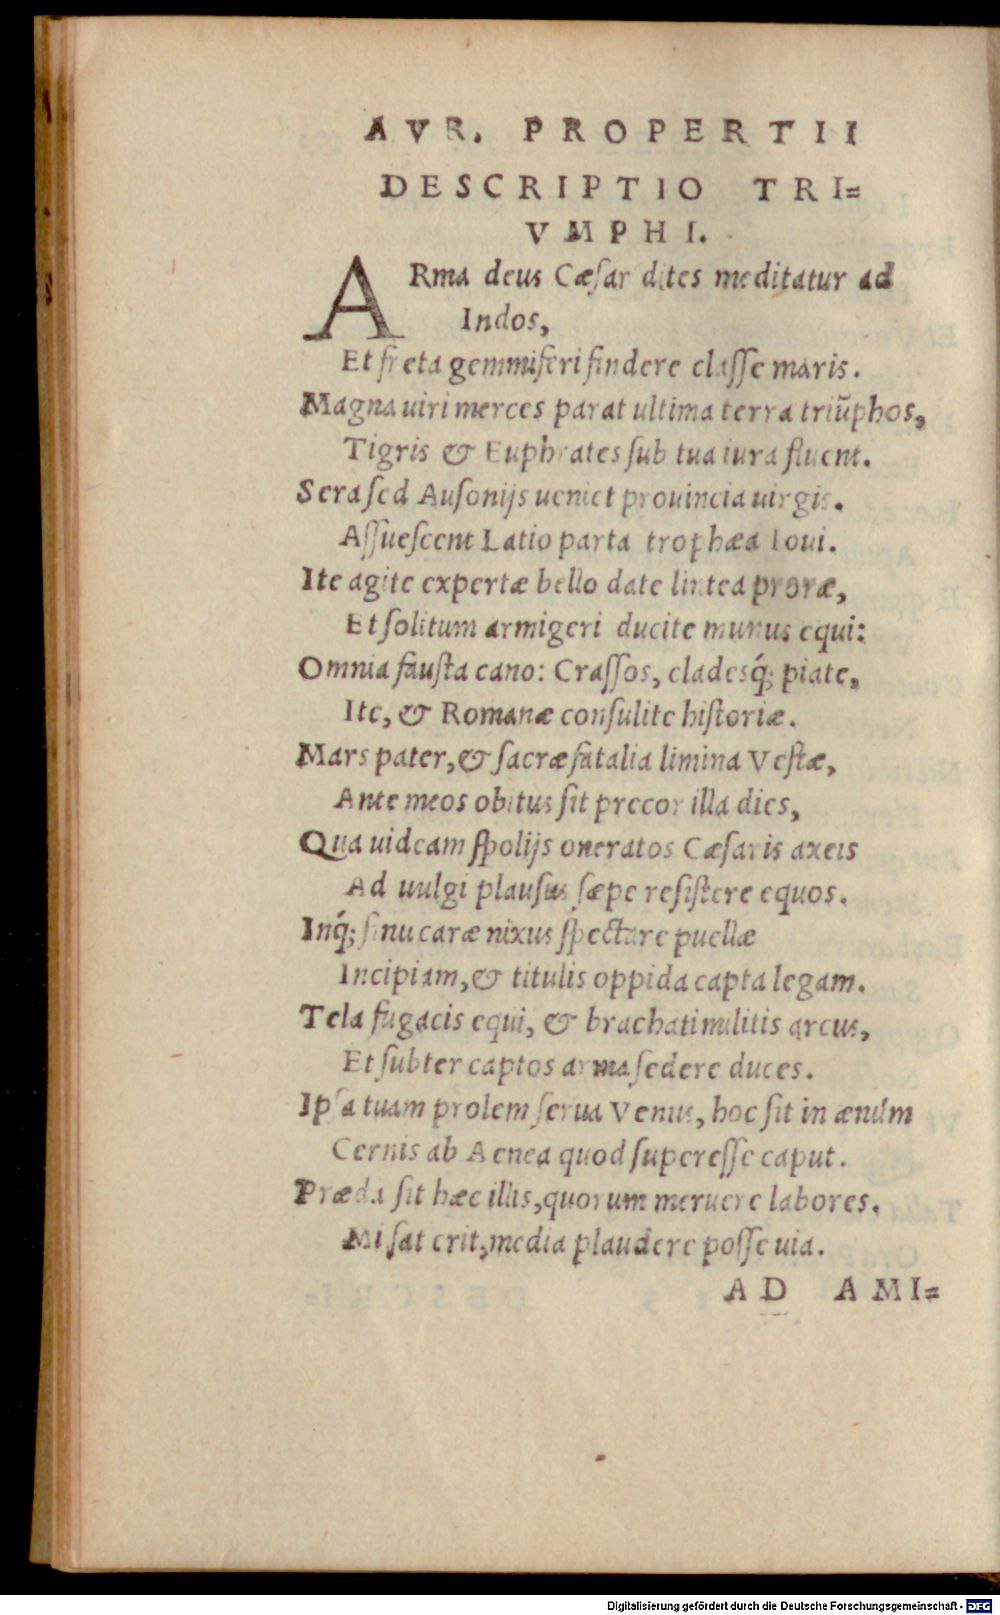 AVR. PROPERTII
DESCRIPTIO TRI=
VMPHI.
ARma deus Cæſar dites meditatur ad
Indos,
Et freta gemmiferi findere claſſe maris.
Magna uiri merces parat ultima terra triũphos,
Tigris & Euphrates ſub tua iura fluent.
Sera ſed Auſonijs ueniet prouincia uirgis.
Aſſueſcent Latio parta trophæa Ioui.
Ite agite expertæ bello date lintea proræ,
Et ſolitum armigeri ducite munus equi:
Omnia fauſta cano: Craſſos, cladesq́; piate,
Ite, & Romanæ conſulite hiſtoriæ.
Mars pater, & ſacræ fatalia limina Veſtæ,
Ante meos obitus ſit precor illa dies,
Qua uideam ſpolijs oneratos Cæſaris axeis
Ad uulgi plauſus ſæpe reſiſtere equos.
Inq́; ſinu caræ nixus ſpectare puellæ
Incipiam, & titulis oppida capta legam.
Tela fugacis equi, & brachati militis arcus,
Et ſubter captos arma ſedere duces.
Ipſa tuam prolem ſerua Venus, hoc ſit in æuũm
Cernis ab Aenea quod ſupereſſe caput.
Præda ſit hæc illis, quorum meruere labores.
Mi ſat erit, media plaudere poſſe uia.
AD AMI=
Digitalisierung gefördert durch die Deutsche Forschungsgemeinschaft - DFG